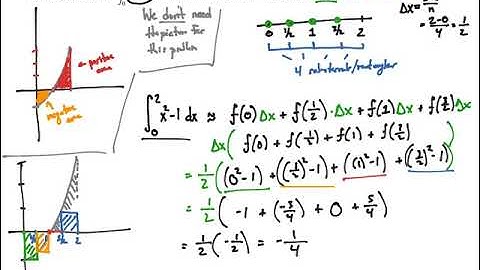 We don't need
the picture for
this problem
Δx = b-a/n
= 2-0/4 = 1/2
0 1/2 1 3/2 2
4 subintervals/rectangles
positive
area
negative
area
∫₀² x²-1 dx ≈ f(0)Δx + f(1/2)·Δx + f(1)Δx + f(3/2)Δx
Δx( f(0) + f(1/2) + f(1) + f(3/2) )
= 1/2( (0²-1) + ((1/2)²-1) + ((1)²-1) + ((3/2)²-1) )
= 1/2( -1 + (-3/4) + 0 + 5/4 )
= 1/2(-1/2) = -1/4
1 3/2 2